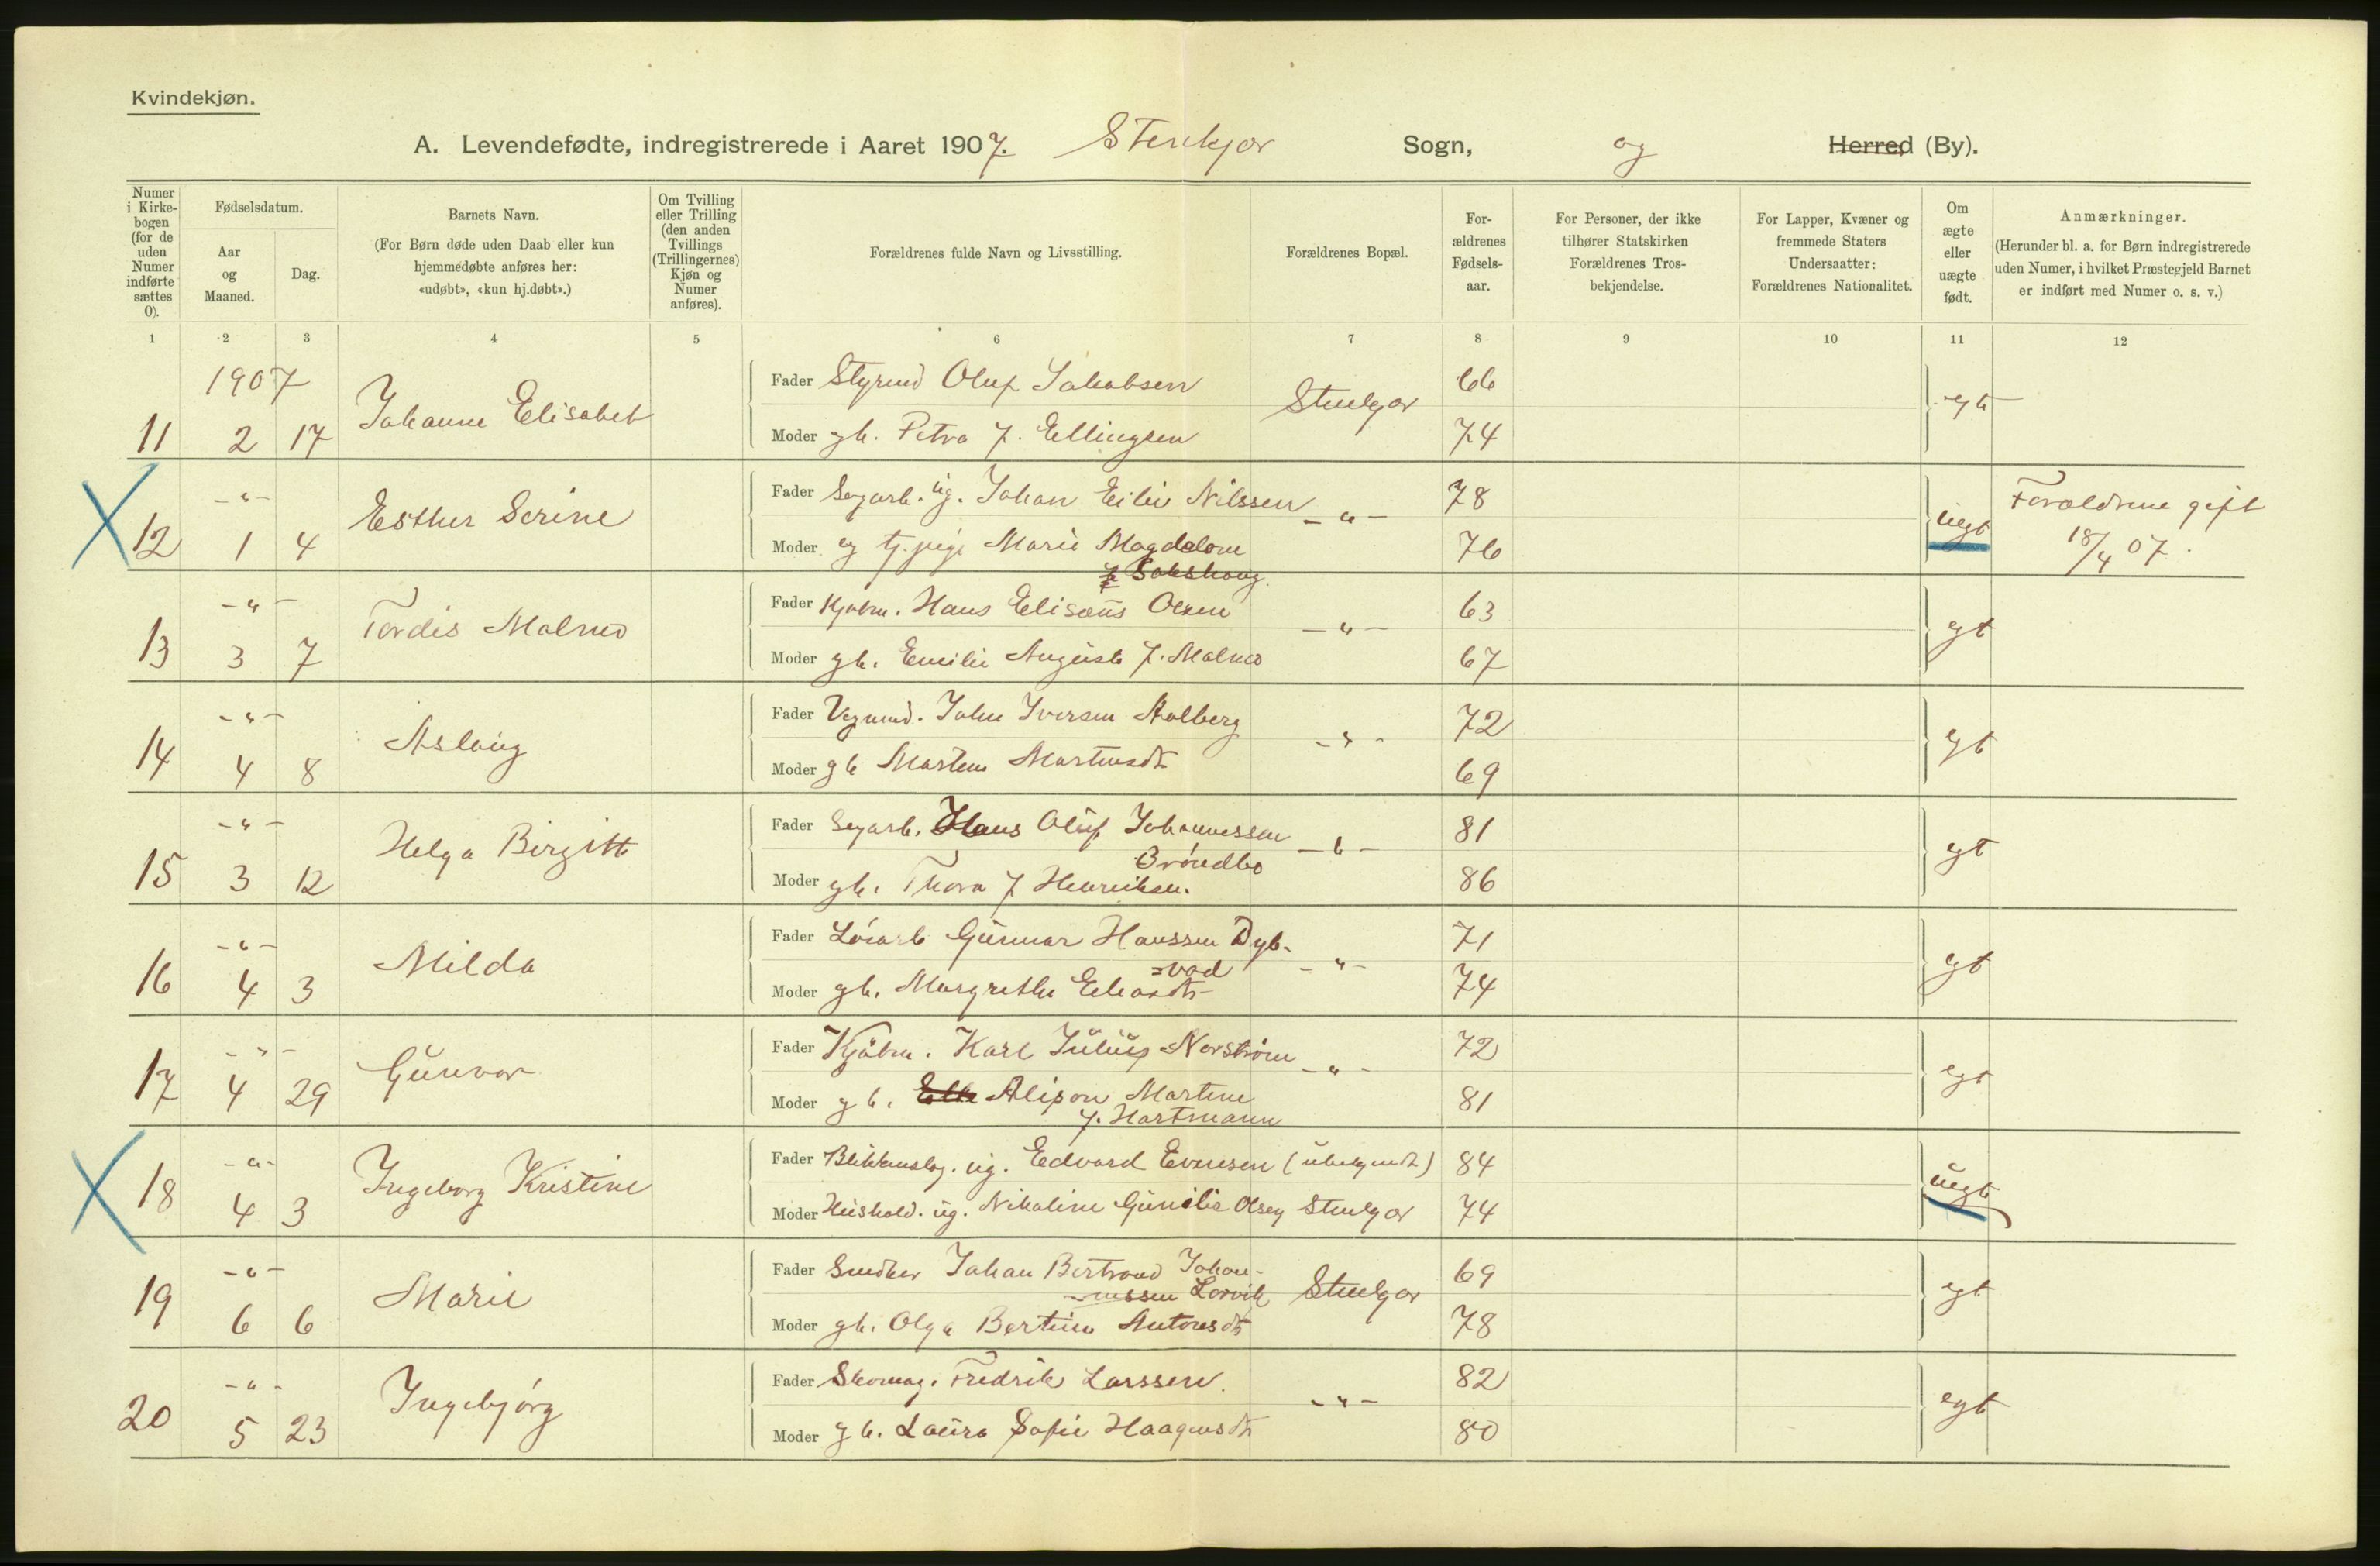 Kvindekjøn.
A. Levendefødte, indregistrerede i Aaret 1907. Stenkjær Sogn, og Herred (By).
Numer i Kirke-bogen (for de uden Numer indførte sættes 0).
Fødselsdatum.
Aar og Maaned.
Dag.
Barnets Navn.
(For Børn døde uden Daab eller kun hjemmedøbte anføres her: «udøbt», «kun hj.døbt».)
Om Tvilling eller Trilling (den anden Tvillings (Trillingernes) Kjøn og Numer anføres).
Forældrenes fulde Navn og Livsstilling.
Forældrenes Bopæl.
For-ældrenes Fødsels-aar.
For Personer, der ikke tilhører Statskirken Forældrenes Tros-bekjendelse.
For Lapper, Kvæner og fremmede Staters Undersaatter: Forældrenes Nationalitet.
Om ægte eller uægte født.
Anmærkninger.
(Herunder bl. a. for Børn indregistrerede uden Numer, i hvilket Præstegjeld Barnet er indført med Numer o. s. v.)
1 2 3 4 5 6 7 8 9 10 11 12
1907
11 2 17 Johanne Elisabet
Fader Styrmd Oluf Jakobsen Stenkjær 66 egt
Moder gh. Petra f. Ellingsen 74
X 12 -"- 1 4 Esther Serine
Fader Sagarb. ug. Johan Eilif Nilssen -"- 78 uegt Forældrene gift
Moder og tj.pige Marie Magdalene 76 18/4 07.
f Sakshaug.
13 -"- 3 7 Tordis Malmo
Fader Kjøbm. Hans Elisæus Olsen -"- 63 egt
Moder gh. Emilie Augusta f. Malmo 67
14 -"- 4 8 Aslaug
Fader Vegmd. John Iversen Aalberg -"- 72 egt
Moder gh Martine Martinusdt 69
15 -"- 3 12 Helga Birgitte
Fader Sagarb. Hans Oluf Johannessen -"- 81 egt
Brøndbo
Moder gh. Thora f Henriksen. 86
16 -"- 4 3 Milda
Fader Løsarb Gunnar Hanssen Dyb- -"- 71 egt
=vad
Moder gh. Margrethe 74
17 -"- 4 29 Gunvor
Fader Kjøbm. Karl Julius Norstrøm -"- 72 egt
Moder gh. Alison Martine 81
f. Hartmann
X 18 -"- 4 3 Ingeborg Kristine
Fader Blikkenslag. ug. Edvard Evensen (ubekjendt) 84 uegt
Moder Hushold. ug. Nikoline Gunilie Olsen Stenkjær 74
19 -"- 6 6 Marie
Fader Snedker Johan Bertrand Johan- 69 egt
-nessen Lorvik Stenkjær
Moder gh. Olga Bertine Antonsdt 78
20 -"- 5 23 Ingebjørg
Fader Skomag. Fredrik Larssen. -"- 82 egt
Moder gh. Laura Sofie Haagensdt 80